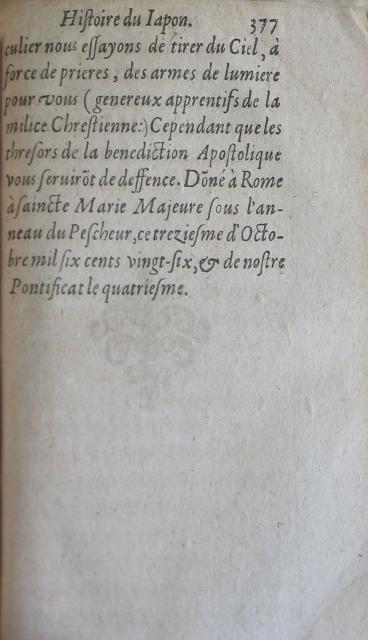 Hiſtoire du Iapon. 377
culier nous eſſayons de tirer du Ciel, à
force de prieres, des armes de lumiere
pour vous (genereux apprentifs de la
milice Chreſtienne:) Cependant que les
threſors de la benediction Apoſtolique
vous ſeruirõt de deffence. Dõné à Rome
à ſaincte Marie Majeure ſous l'an-
neau du Peſcheur, ce treZieſme d'Octo-
bre mil ſix cents vingt-ſix, & de noſtre
Pontificat le quatrieſme.